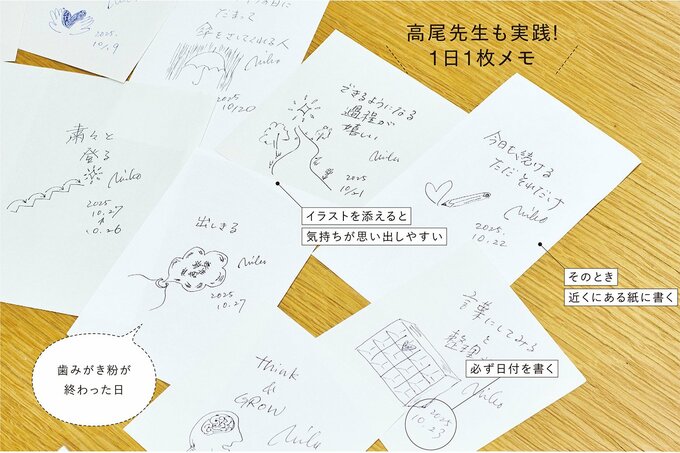 高尾先生も実践!
1日1枚メモ
2025.
10.19
たまってる
傘をさしてくれる人
Miko
2025
10/20
できるようになる
過程が
嬉しい
Miko
2025
10/21
今日も続ける
ただそれだけ
Miko
2025.
10.22
粛々と
登る
Miko
2025
10.27
10.26
出しきる
Miko
2025
10.27
イラストを添えると
気持ちが思い出しやすい
そのとき
近くにある紙に書く
言葉にしてみる
と
整理
Miko
2025
10.23
必ず日付を書く
歯みがき粉が
終わった日
think
&
GROW
Miko